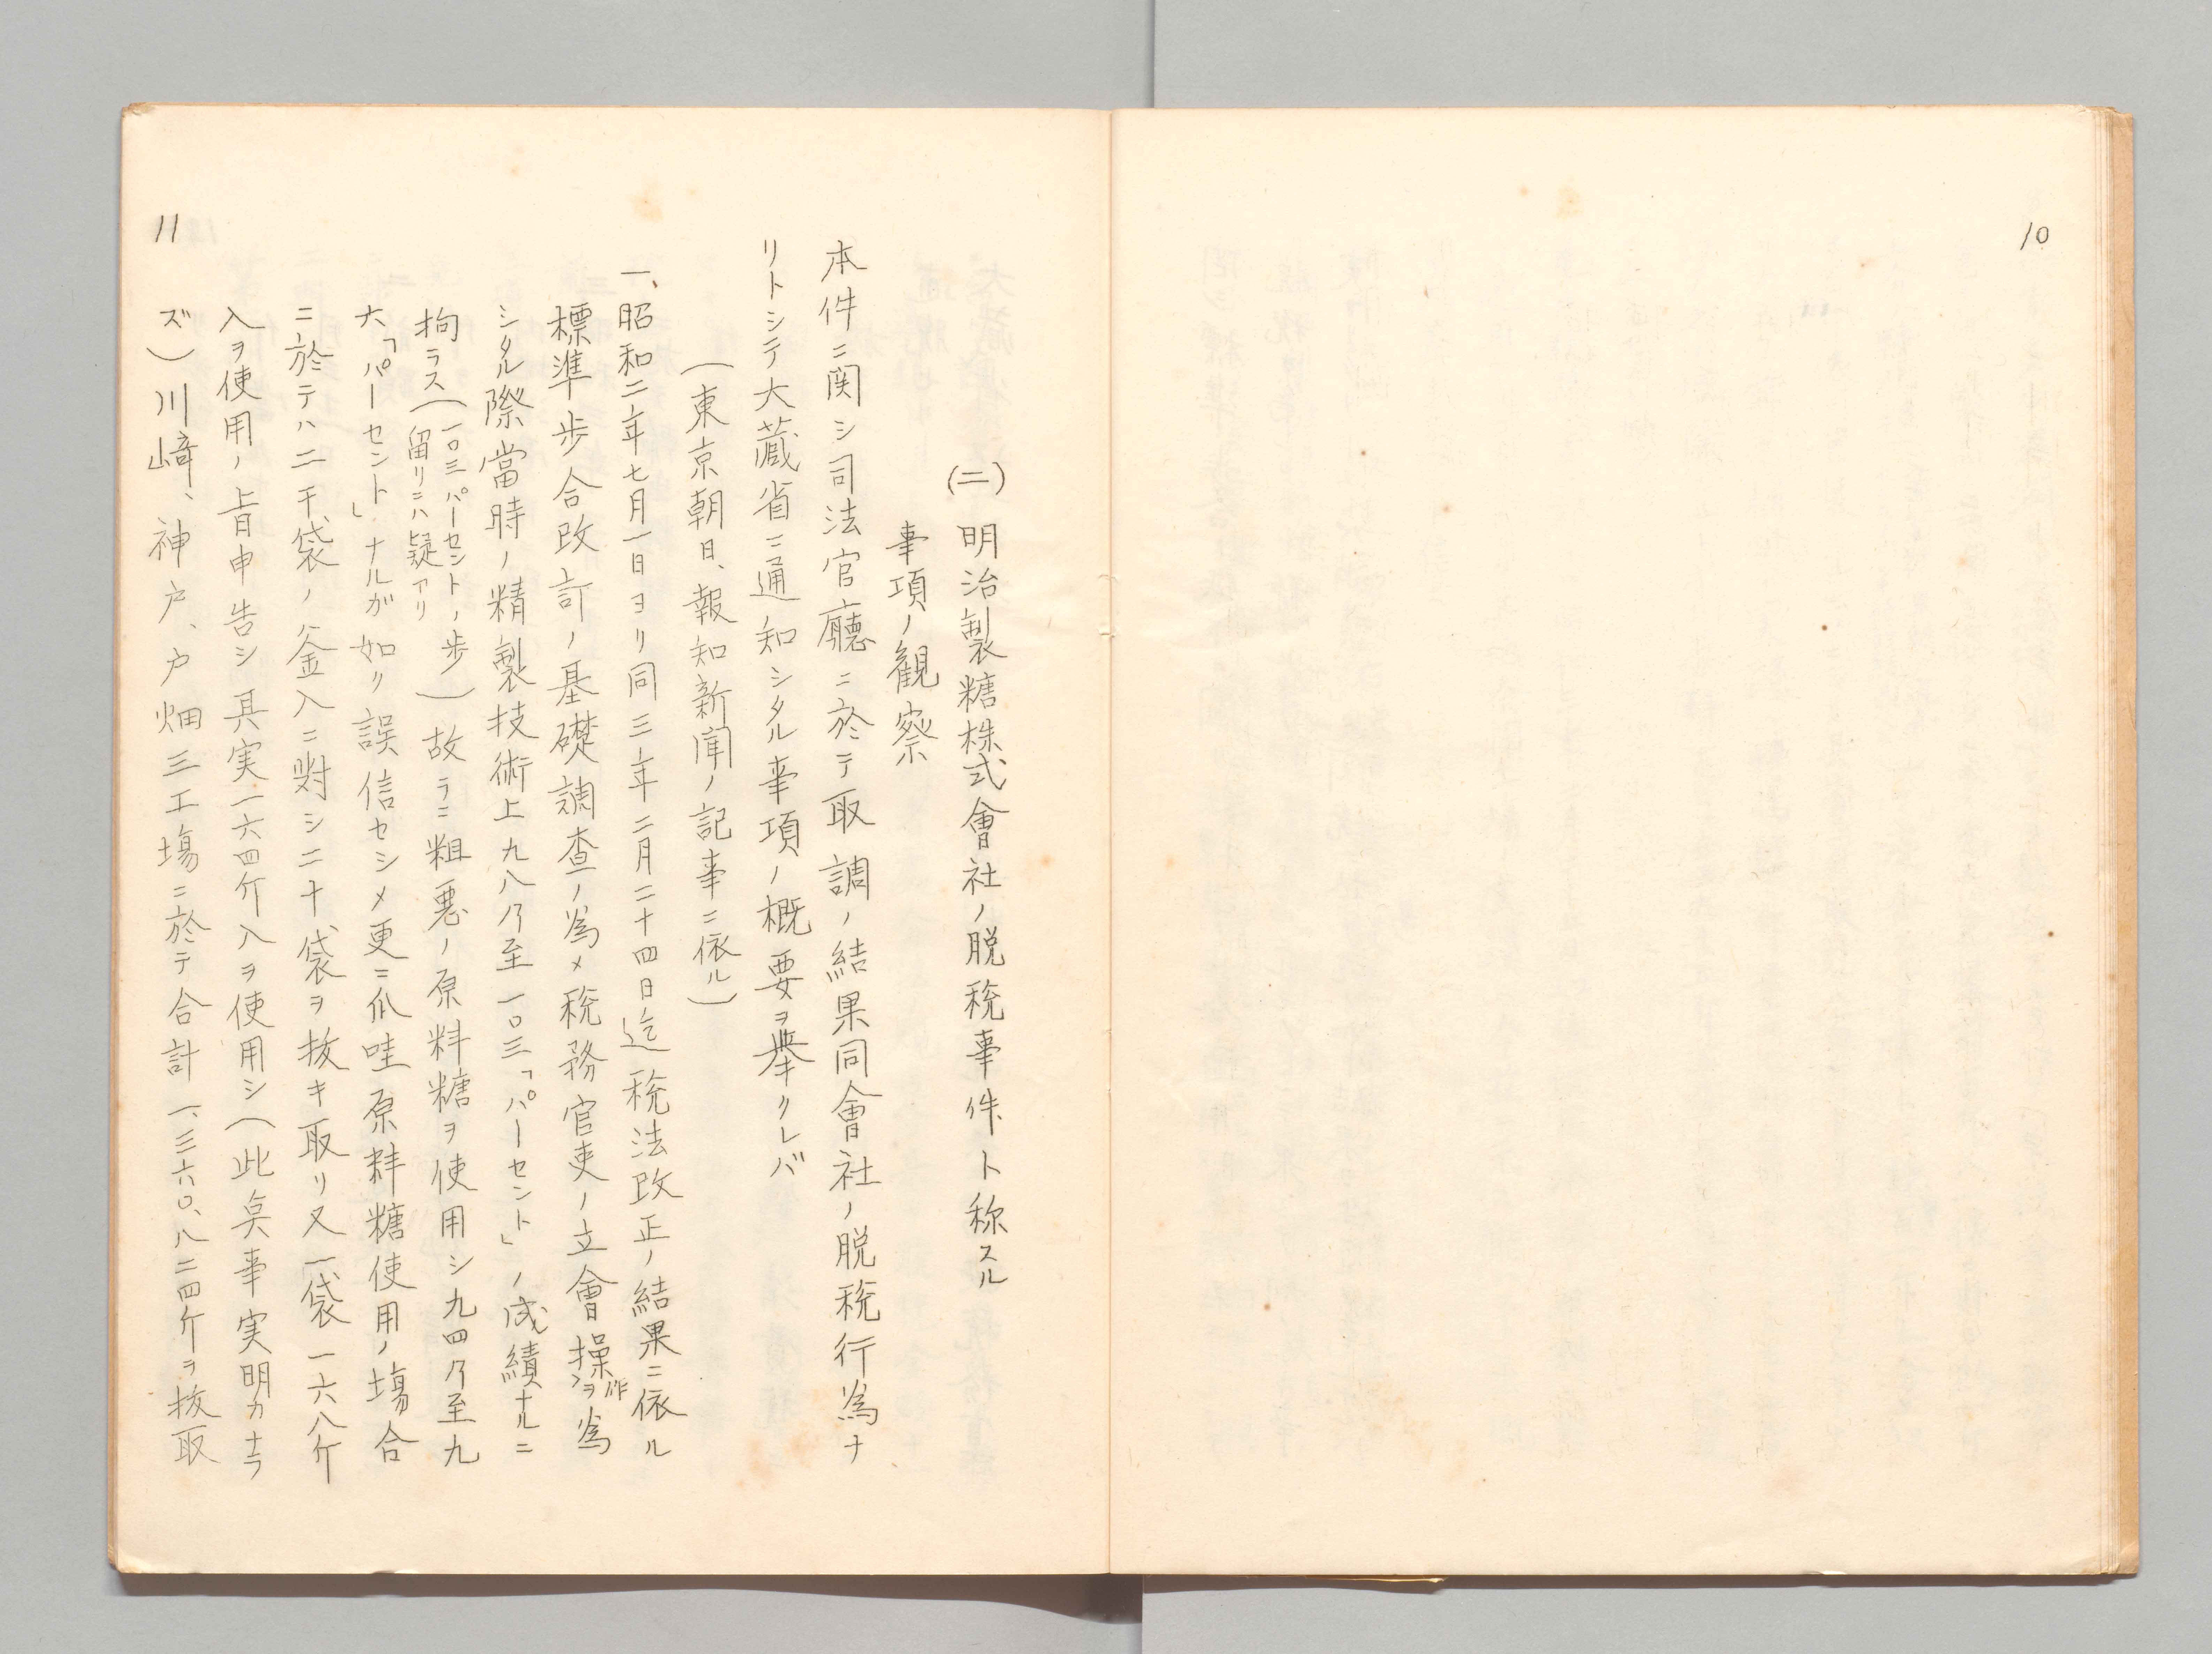 10
(二) 明治製糖株式會社ノ脱税事件ト称スル
事項ノ観察
本件ニ関シ司法官廳ニ於テ取調ノ結果同會社ノ脱税行為ナ
リトシテ大蔵省ニ通知シタル事項ノ概要ヲ挙クレバ
(東京朝日、報知新聞ノ記事ニ依ル)
一、昭和二年七月一日ヨリ同三年二月二十四日迄税法改正ノ結果ニ依ル
標準歩合改訂ノ基礎調査ノ為メ税務官吏ノ立會操作ヲ為
シタル際當時ノ精製技術上九八乃至一〇三「パーセント」ノ成績ナルニ
拘ラス(一〇三パーセントノ歩留リニハ疑アリ)故ラニ粗悪ノ原料糖ヲ使用シ九四乃至九
六「パーセント」ナルガ如リ誤信セシメ更ニ爪哇原料糖使用ノ場合
ニ於テハ二千袋ノ釜入ニ対シ二十袋ヲ抜キ取リ又一袋一六八斤
入ヲ使用ノ旨申告シ其実一六四斤入ヲ使用シ(此奌事実明カナラ
ズ)川崎、神戸、戸畑三工場ニ於テ合計一、三六〇、八二四斤ヲ抜取
11